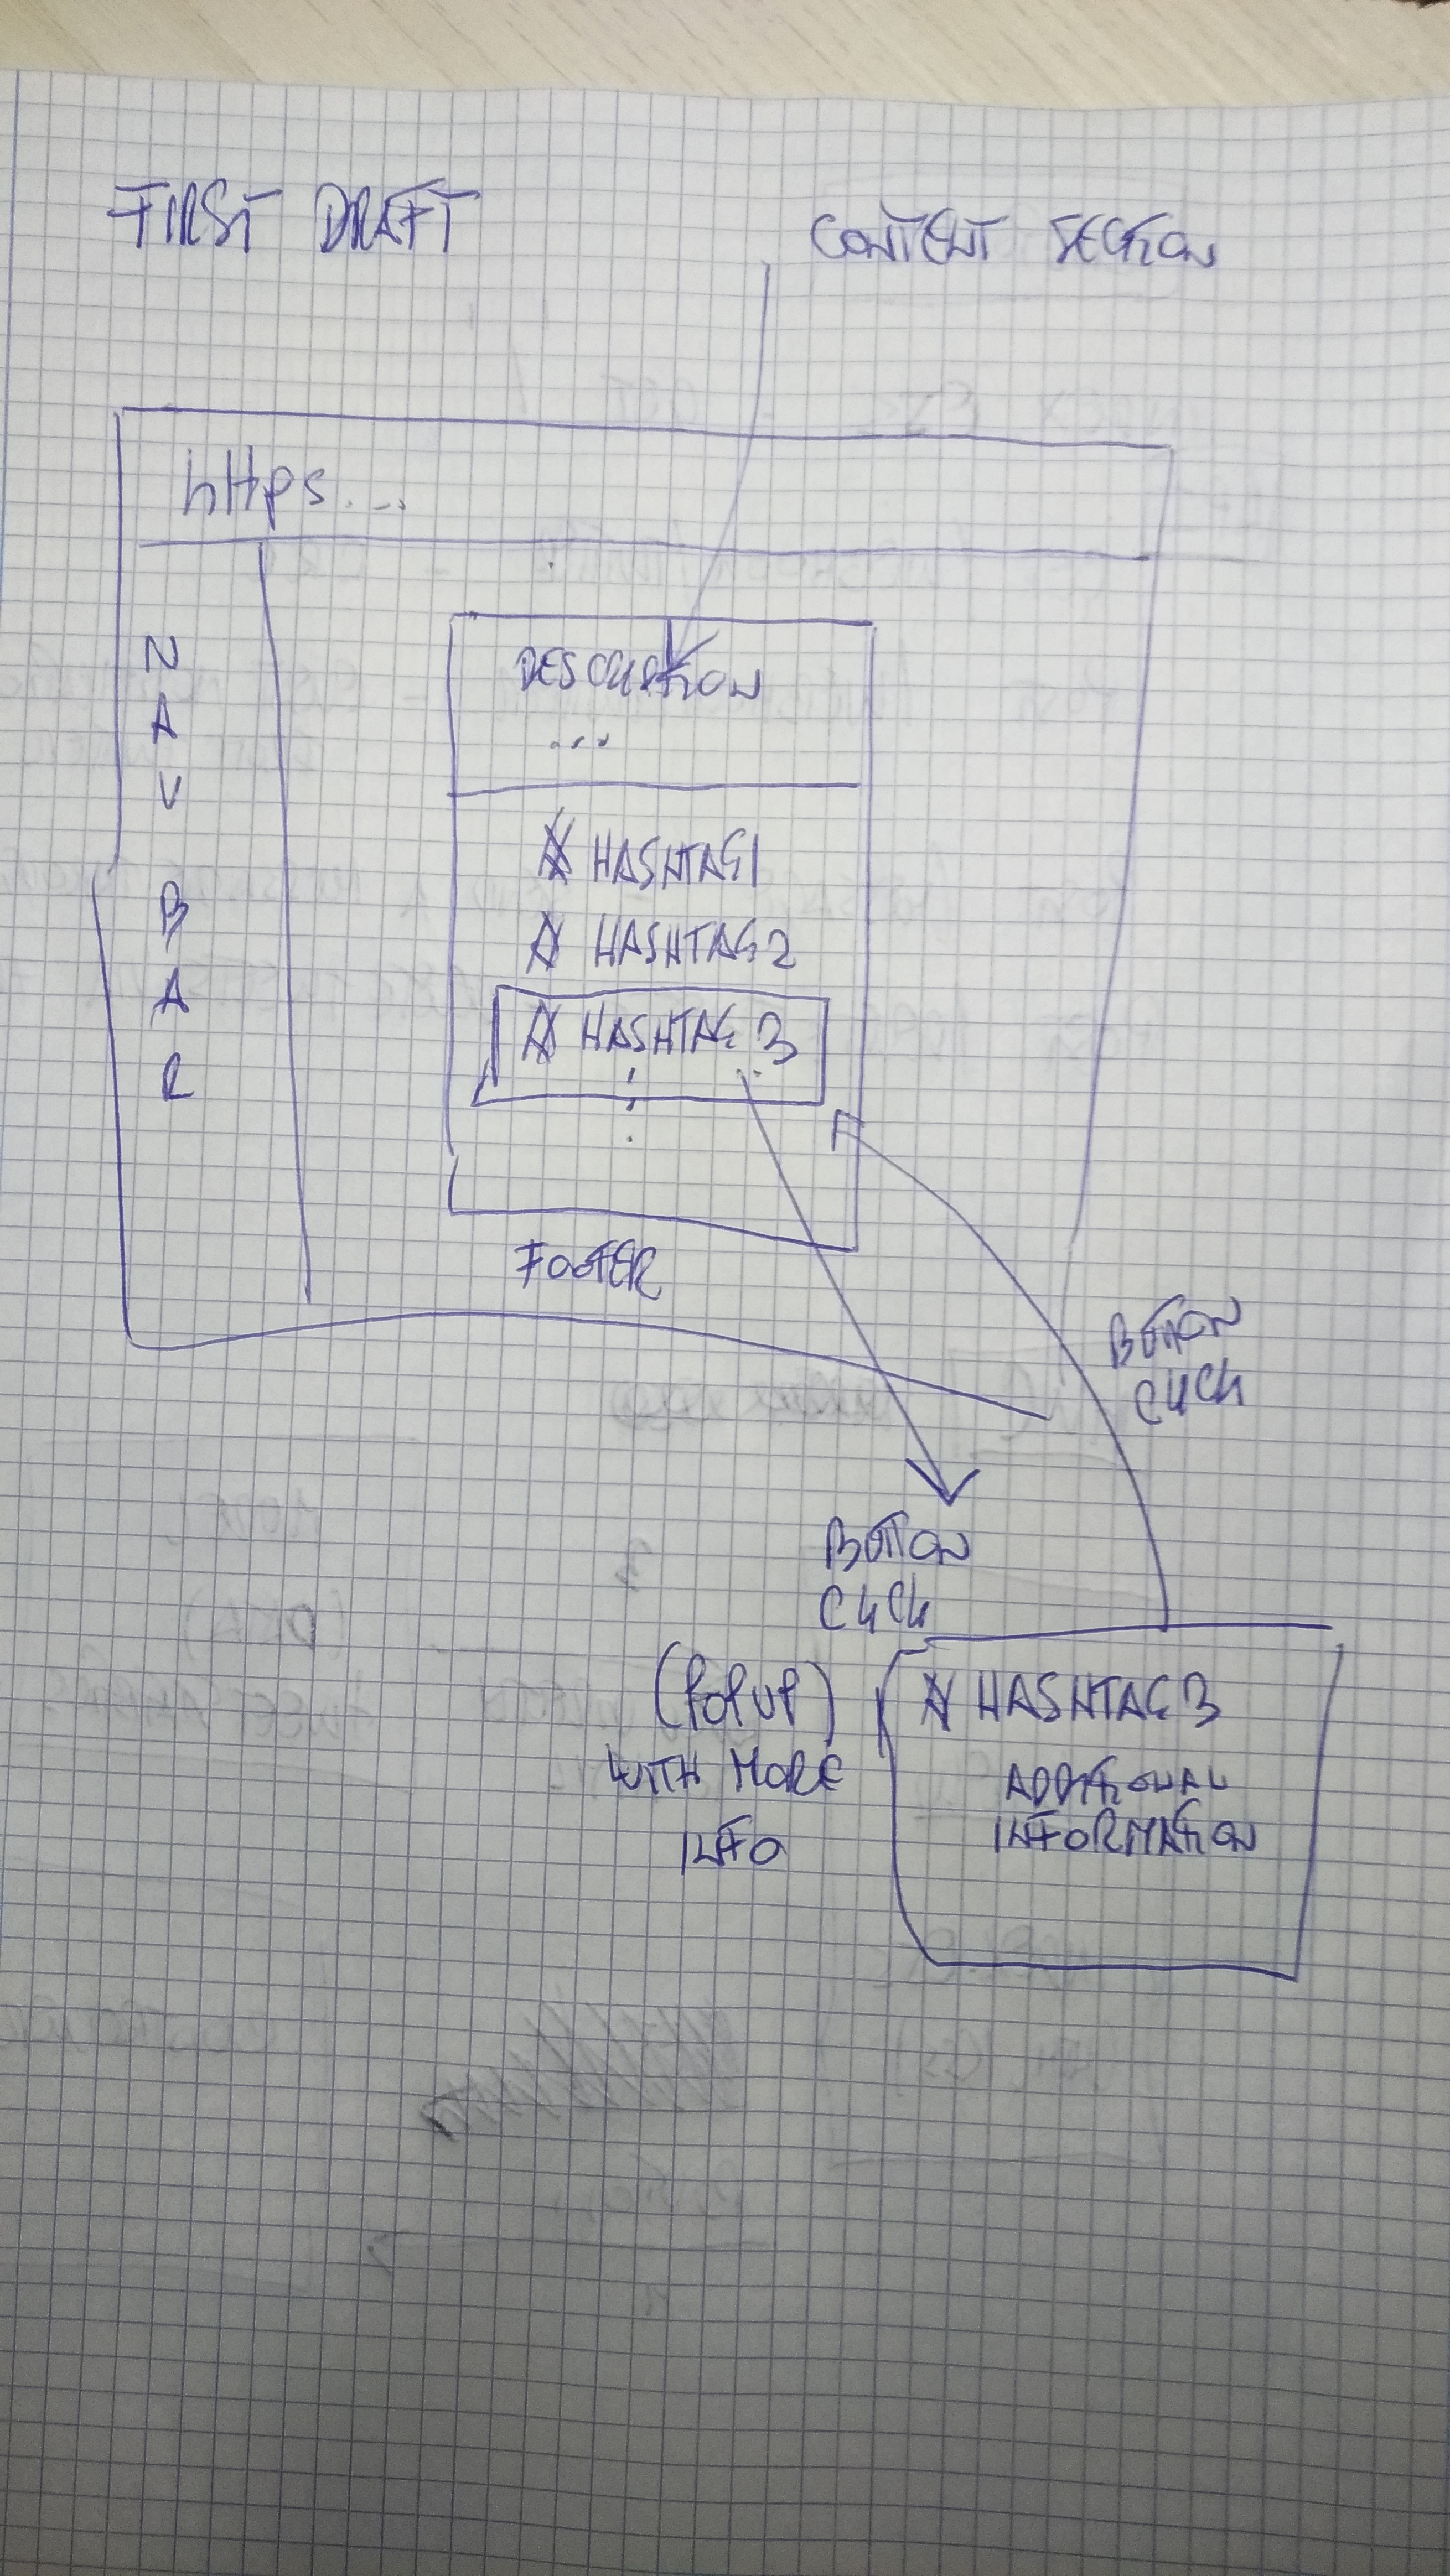 FIRST DRAFT
CONTENT SECTION
https...
NAV BAR
DESCRIPTION
...
# HASHTAG1
# HASHTAG2
# HASHTAG 3
FOOTER
BUTTON
CLICK
BUTTON
CLICK
(POPUP)
WITH MORE
INFO
# HASHTAG 3
ADDITIONAL
INFORMATION